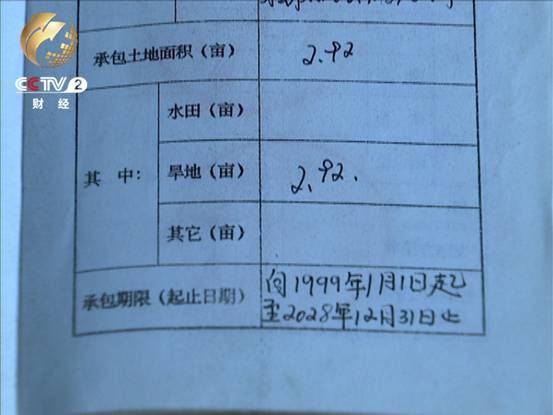 承包土地面积（亩） 2.92
CCTV 2
财经
水田（亩）
其 中： 旱地（亩） 2.92.
其它（亩）
承包期限（起止日期） 向1999年1月1日起
至2028年12月31日止